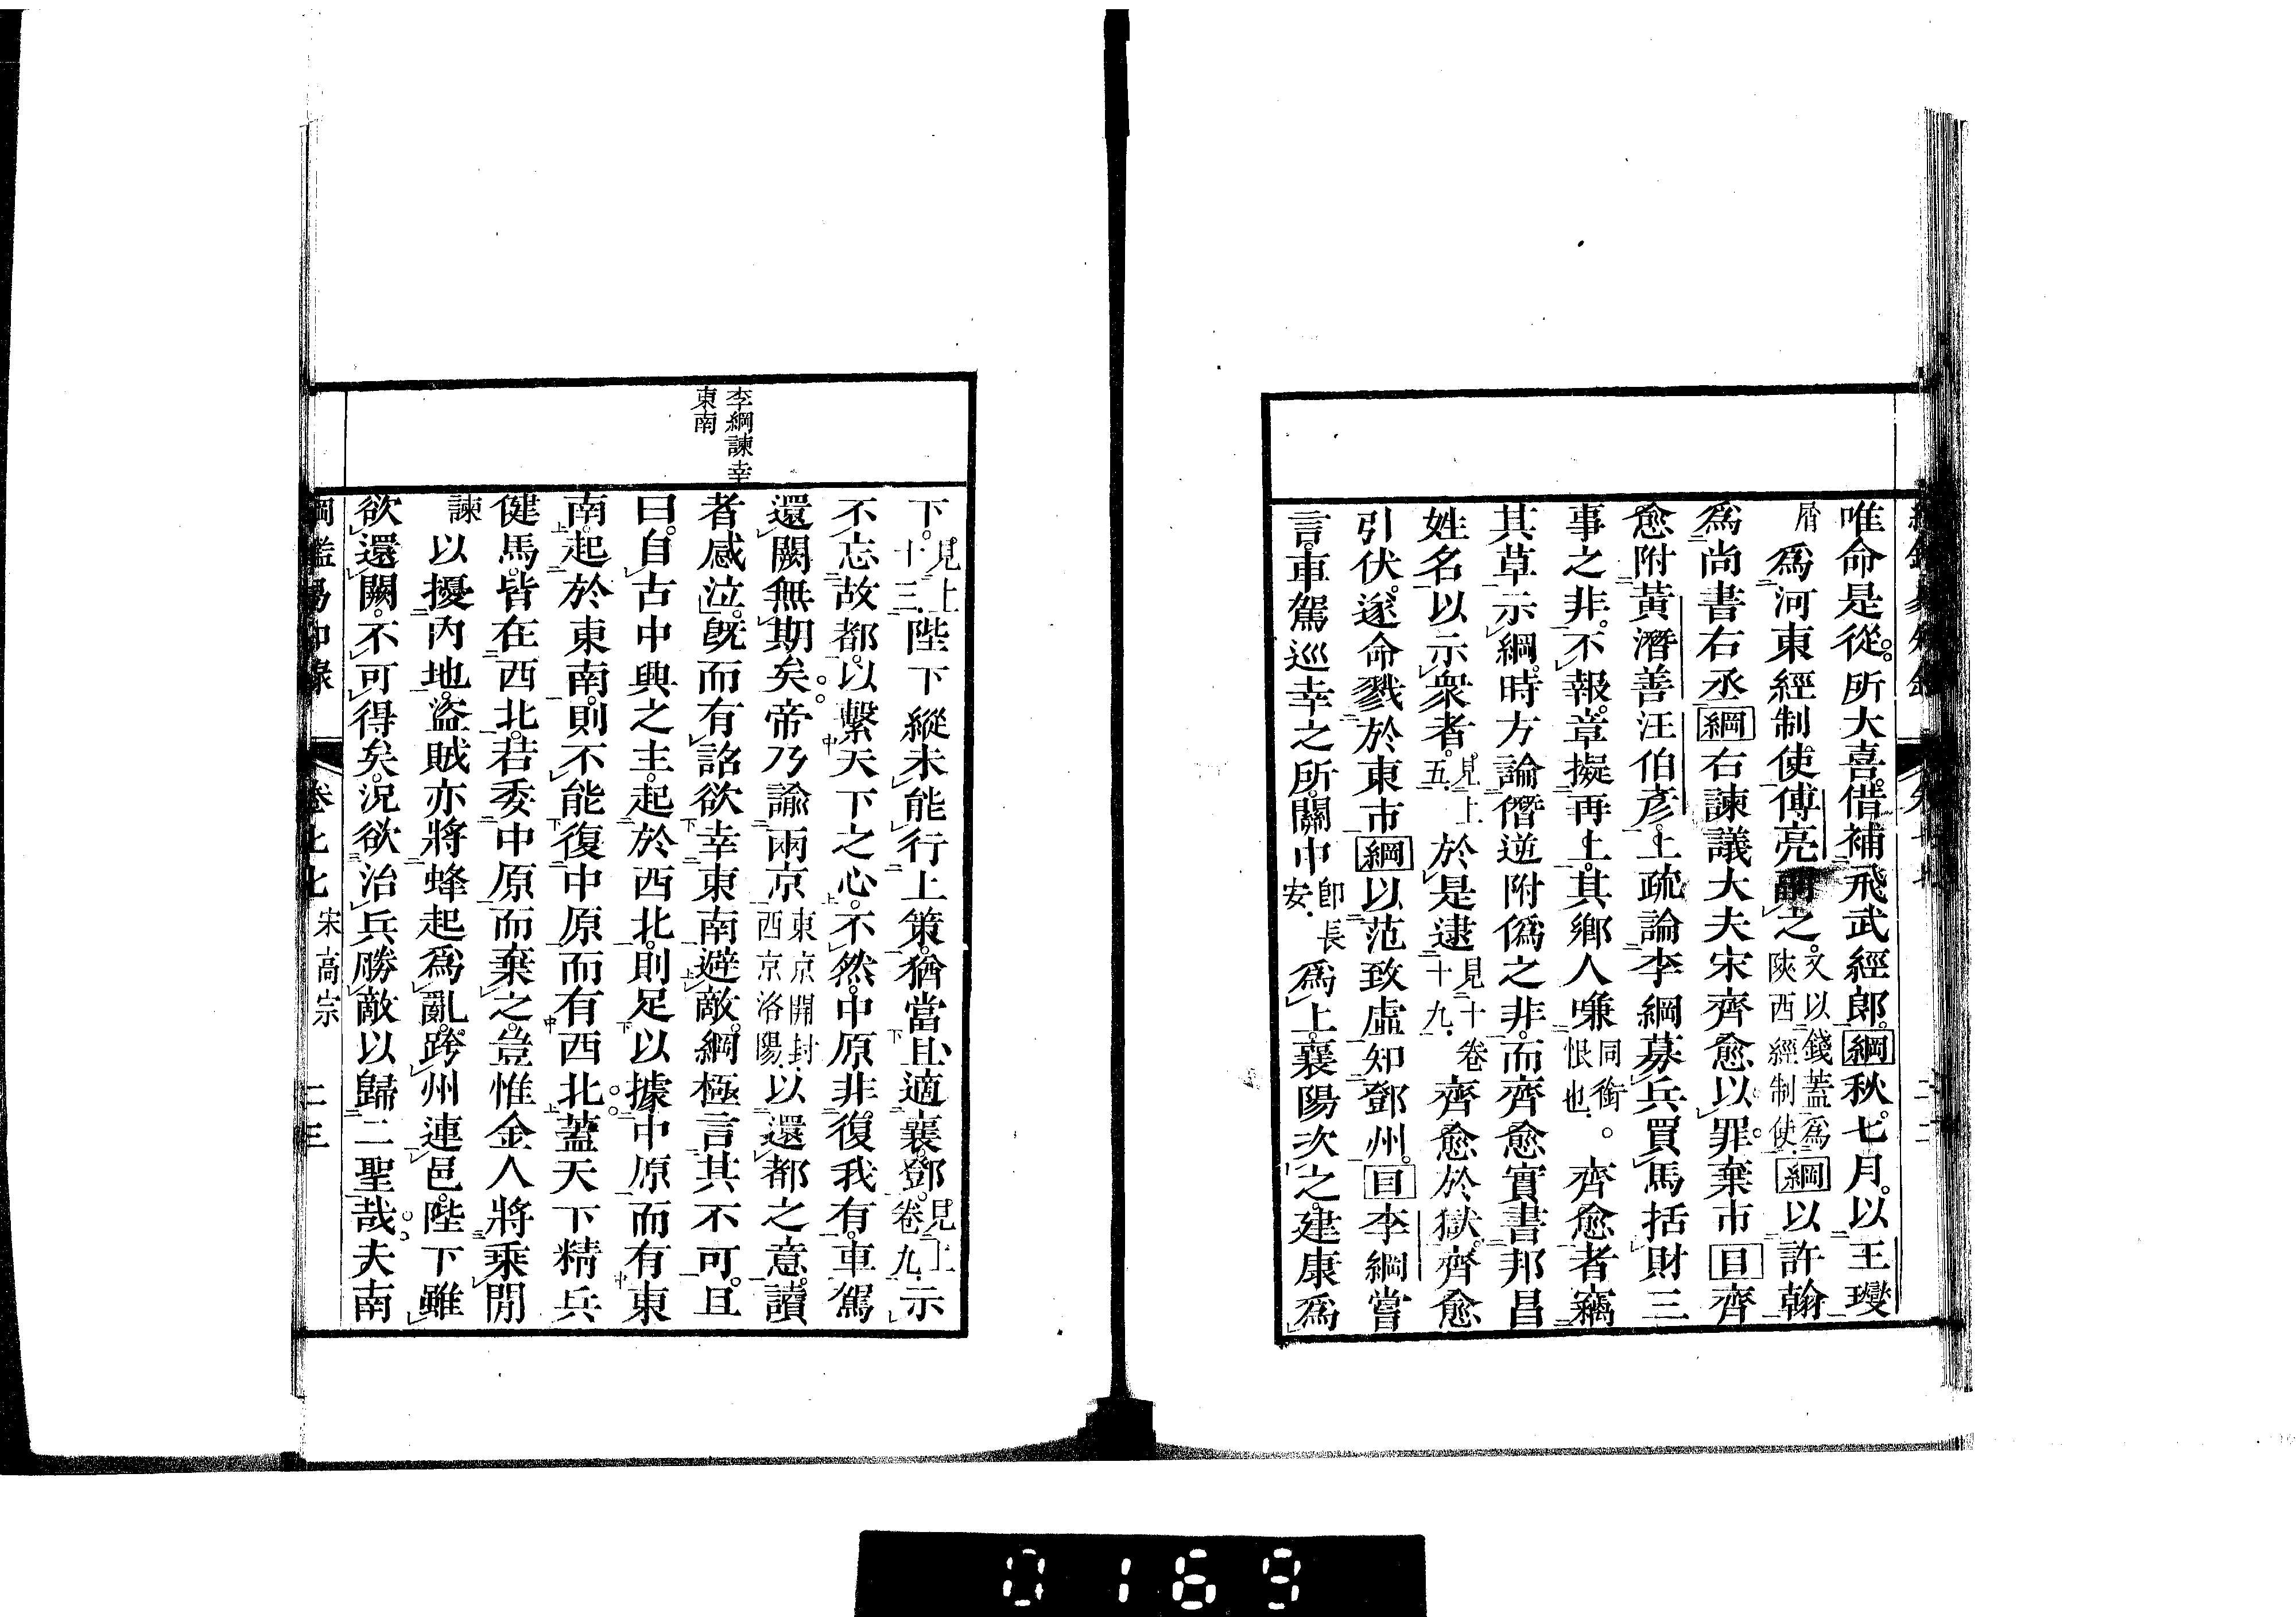 唯命是從。所大喜。借補飛武經郎。綱秋。七月。以王𤫉
屑爲河東經制使。傅亮副之。又以錢蓋爲陝西經制使。綱以許翰
爲尚書右丞綱右諫議大夫宋齊愈以罪。棄市目齊
愈附黃潛善汪伯彥。上疏論李綱募兵買馬括財三
事之非。不報。章擬再上。其鄉人嗛同銜恨也。齊愈者竊
其草示綱。時方論僭逆附僞之非。而齊愈實書邦昌
姓名以示衆者。見上五。於是逮見十卷十九。齊愈於獄。齊愈
引伏。遂命戮於東市綱以范致虛知鄧州。目李綱嘗
言。車駕巡幸之所。關中卽長安。爲上。襄陽次之。建康爲
李綱諫幸
東南
下。見上十三。陛下縱未能行上策。猶當且適襄鄧。見上卷九。示
不忘故都。以繫天下之心。不然。中原非復我有。車駕
還闕無期矣。帝乃諭兩京東京開封。西京洛陽。以還都之意。讀
者感泣。旣而有詔欲幸東南避敵。綱極言其不可。且
曰。自古中興之主。起於西北。則足以據中原而有東
南。起於東南。則不能復中原而有西北。蓋天下精兵
健馬。皆在西北。若委中原而棄之。豈惟金人將乘閒
諫以擾內地。盜賊亦將蜂起爲亂。跨州連邑。陛下雖
欲還闕。不可得矣。況欲治兵勝敵以歸二聖哉。夫南
卷七七 宋高宗 二三
0169